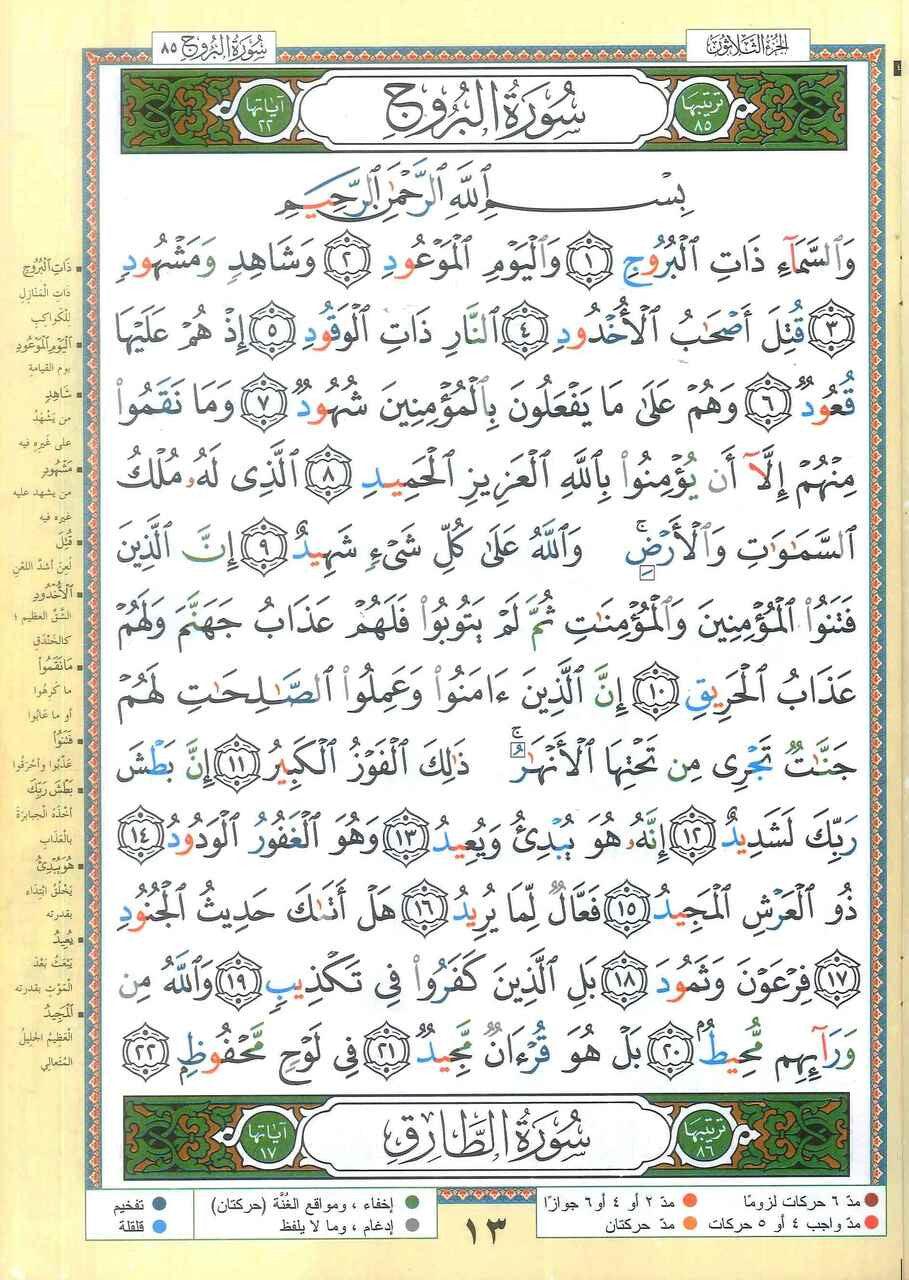 الجزء الثلاثون
سورة البروج ٨٥
ترتيبها ٨٥
سُورَةُ الْبُرُوجِ
آياتها ٢٢
بِسْمِ ٱللَّهِ ٱلرَّحْمَٰنِ ٱلرَّحِيمِ
وَٱلسَّمَآءِ ذَاتِ ٱلْبُرُوجِ ١ وَٱلْيَوْمِ ٱلْمَوْعُودِ ٢ وَشَاهِدٍ وَمَشْهُودٍ
٣ قُتِلَ أَصْحَٰبُ ٱلْأُخْدُودِ ٤ ٱلنَّارِ ذَاتِ ٱلْوَقُودِ ٥ إِذْ هُمْ عَلَيْهَا
قُعُودٌ ٦ وَهُمْ عَلَىٰ مَا يَفْعَلُونَ بِٱلْمُؤْمِنِينَ شُهُودٌ ٧ وَمَا نَقَمُوا۟
مِنْهُمْ إِلَّآ أَن يُؤْمِنُوا۟ بِٱللَّهِ ٱلْعَزِيزِ ٱلْحَمِيدِ ٨ ٱلَّذِى لَهُۥ مُلْكُ
ٱلسَّمَٰوَٰتِ وَٱلْأَرْضِ ۚ وَٱللَّهُ عَلَىٰ كُلِّ شَىْءٍ شَهِيدٌ ٩ إِنَّ ٱلَّذِينَ
فَتَنُوا۟ ٱلْمُؤْمِنِينَ وَٱلْمُؤْمِنَٰتِ ثُمَّ لَمْ يَتُوبُوا۟ فَلَهُمْ عَذَابُ جَهَنَّمَ وَلَهُمْ
عَذَابُ ٱلْحَرِيقِ ١٠ إِنَّ ٱلَّذِينَ ءَامَنُوا۟ وَعَمِلُوا۟ ٱلصَّٰلِحَٰتِ لَهُمْ
جَنَّٰتٌ تَجْرِى مِن تَحْتِهَا ٱلْأَنْهَٰرُ ۚ ذَٰلِكَ ٱلْفَوْزُ ٱلْكَبِيرُ ١١ إِنَّ بَطْشَ
رَبِّكَ لَشَدِيدٌ ١٢ إِنَّهُۥ هُوَ يُبْدِئُ وَيُعِيدُ ١٣ وَهُوَ ٱلْغَفُورُ ٱلْوَدُودُ ١٤
ذُو ٱلْعَرْشِ ٱلْمَجِيدُ ١٥ فَعَّالٌ لِّمَا يُرِيدُ ١٦ هَلْ أَتَىٰكَ حَدِيثُ ٱلْجُنُودِ
١٧ فِرْعَوْنَ وَثَمُودَ ١٨ بَلِ ٱلَّذِينَ كَفَرُوا۟ فِى تَكْذِيبٍ ١٩ وَٱللَّهُ مِن
وَرَآئِهِم مُّحِيطٌۢ ٢٠ بَلْ هُوَ قُرْءَانٌ مَّجِيدٌ ٢١ فِى لَوْحٍ مَّحْفُوظٍۭ ٢٢
ترتيبها ٨٦
سُورَةُ الطَّارِقِ
آياتها ١٧
ذَاتِ الْبُرُوجِ
ذات المنازل
للكواكب
الْيَوْمِ الْمَوْعُودِ
يوم القيامة
شَاهِدٍ
من يَشْهَدُ
على غيره فيه
مَشْهُودٍ
من يشهد عليه
غيره فيه
قُتِلَ
لُعِنَ أشدّ اللعن
الْأُخْدُودِ
الشّقّ العظيم ؛
كالخندق
مَا نَقَمُوا
ما كَرِهُوا
أو ما عابُوا
فَتَنُوا
عذّبوا وأحرقوا
بَطْشَ رَبِّكَ
أخذه الجبابرة
بالعذاب
هُوَ يُبْدِئُ
يخلق ابتداء
بقدرته
يُعِيدُ
يبعث بعد
الموت بقدرته
الْمَجِيدُ
العظيم الجليل
المتعالي
مدّ ٦ حركات لزومًا
مدّ ٢ أو ٤ أو ٦ جوازًا
مدّ واجب ٤ أو ٥ حركات
مدّ حركتان
١٣
إخفاء ، ومواقع الغُنَّة (حركتان)
تفخيم
إدغام ، وما لا يلفظ
قلقلة